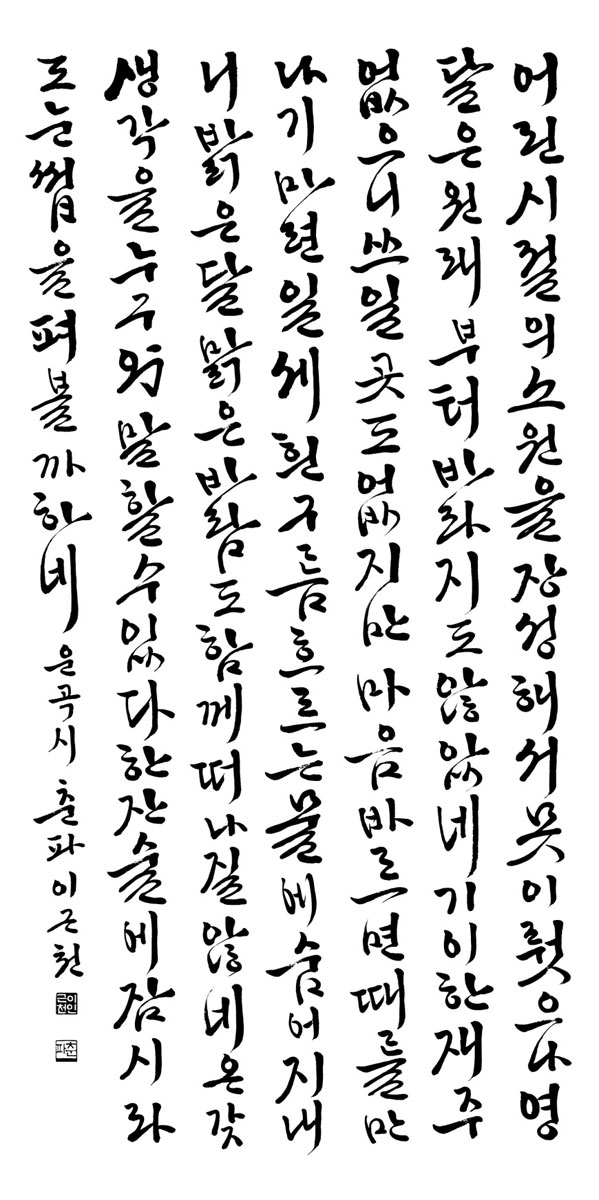 어린시절의소원을장성해서못이뤘으나영
달은원래부터바라지도않았네기이한재주
없으니쓰일곳도없지만마음바르면때를만
나기마련일세흰구름흐르는물에숨어지내
니밝은달맑은바람도함께떠나질않네온갖
생각을누구와말할수있다한잔술에잠시라
도눈썹을펴볼까하네 운곡시 춘파이근천
춘파